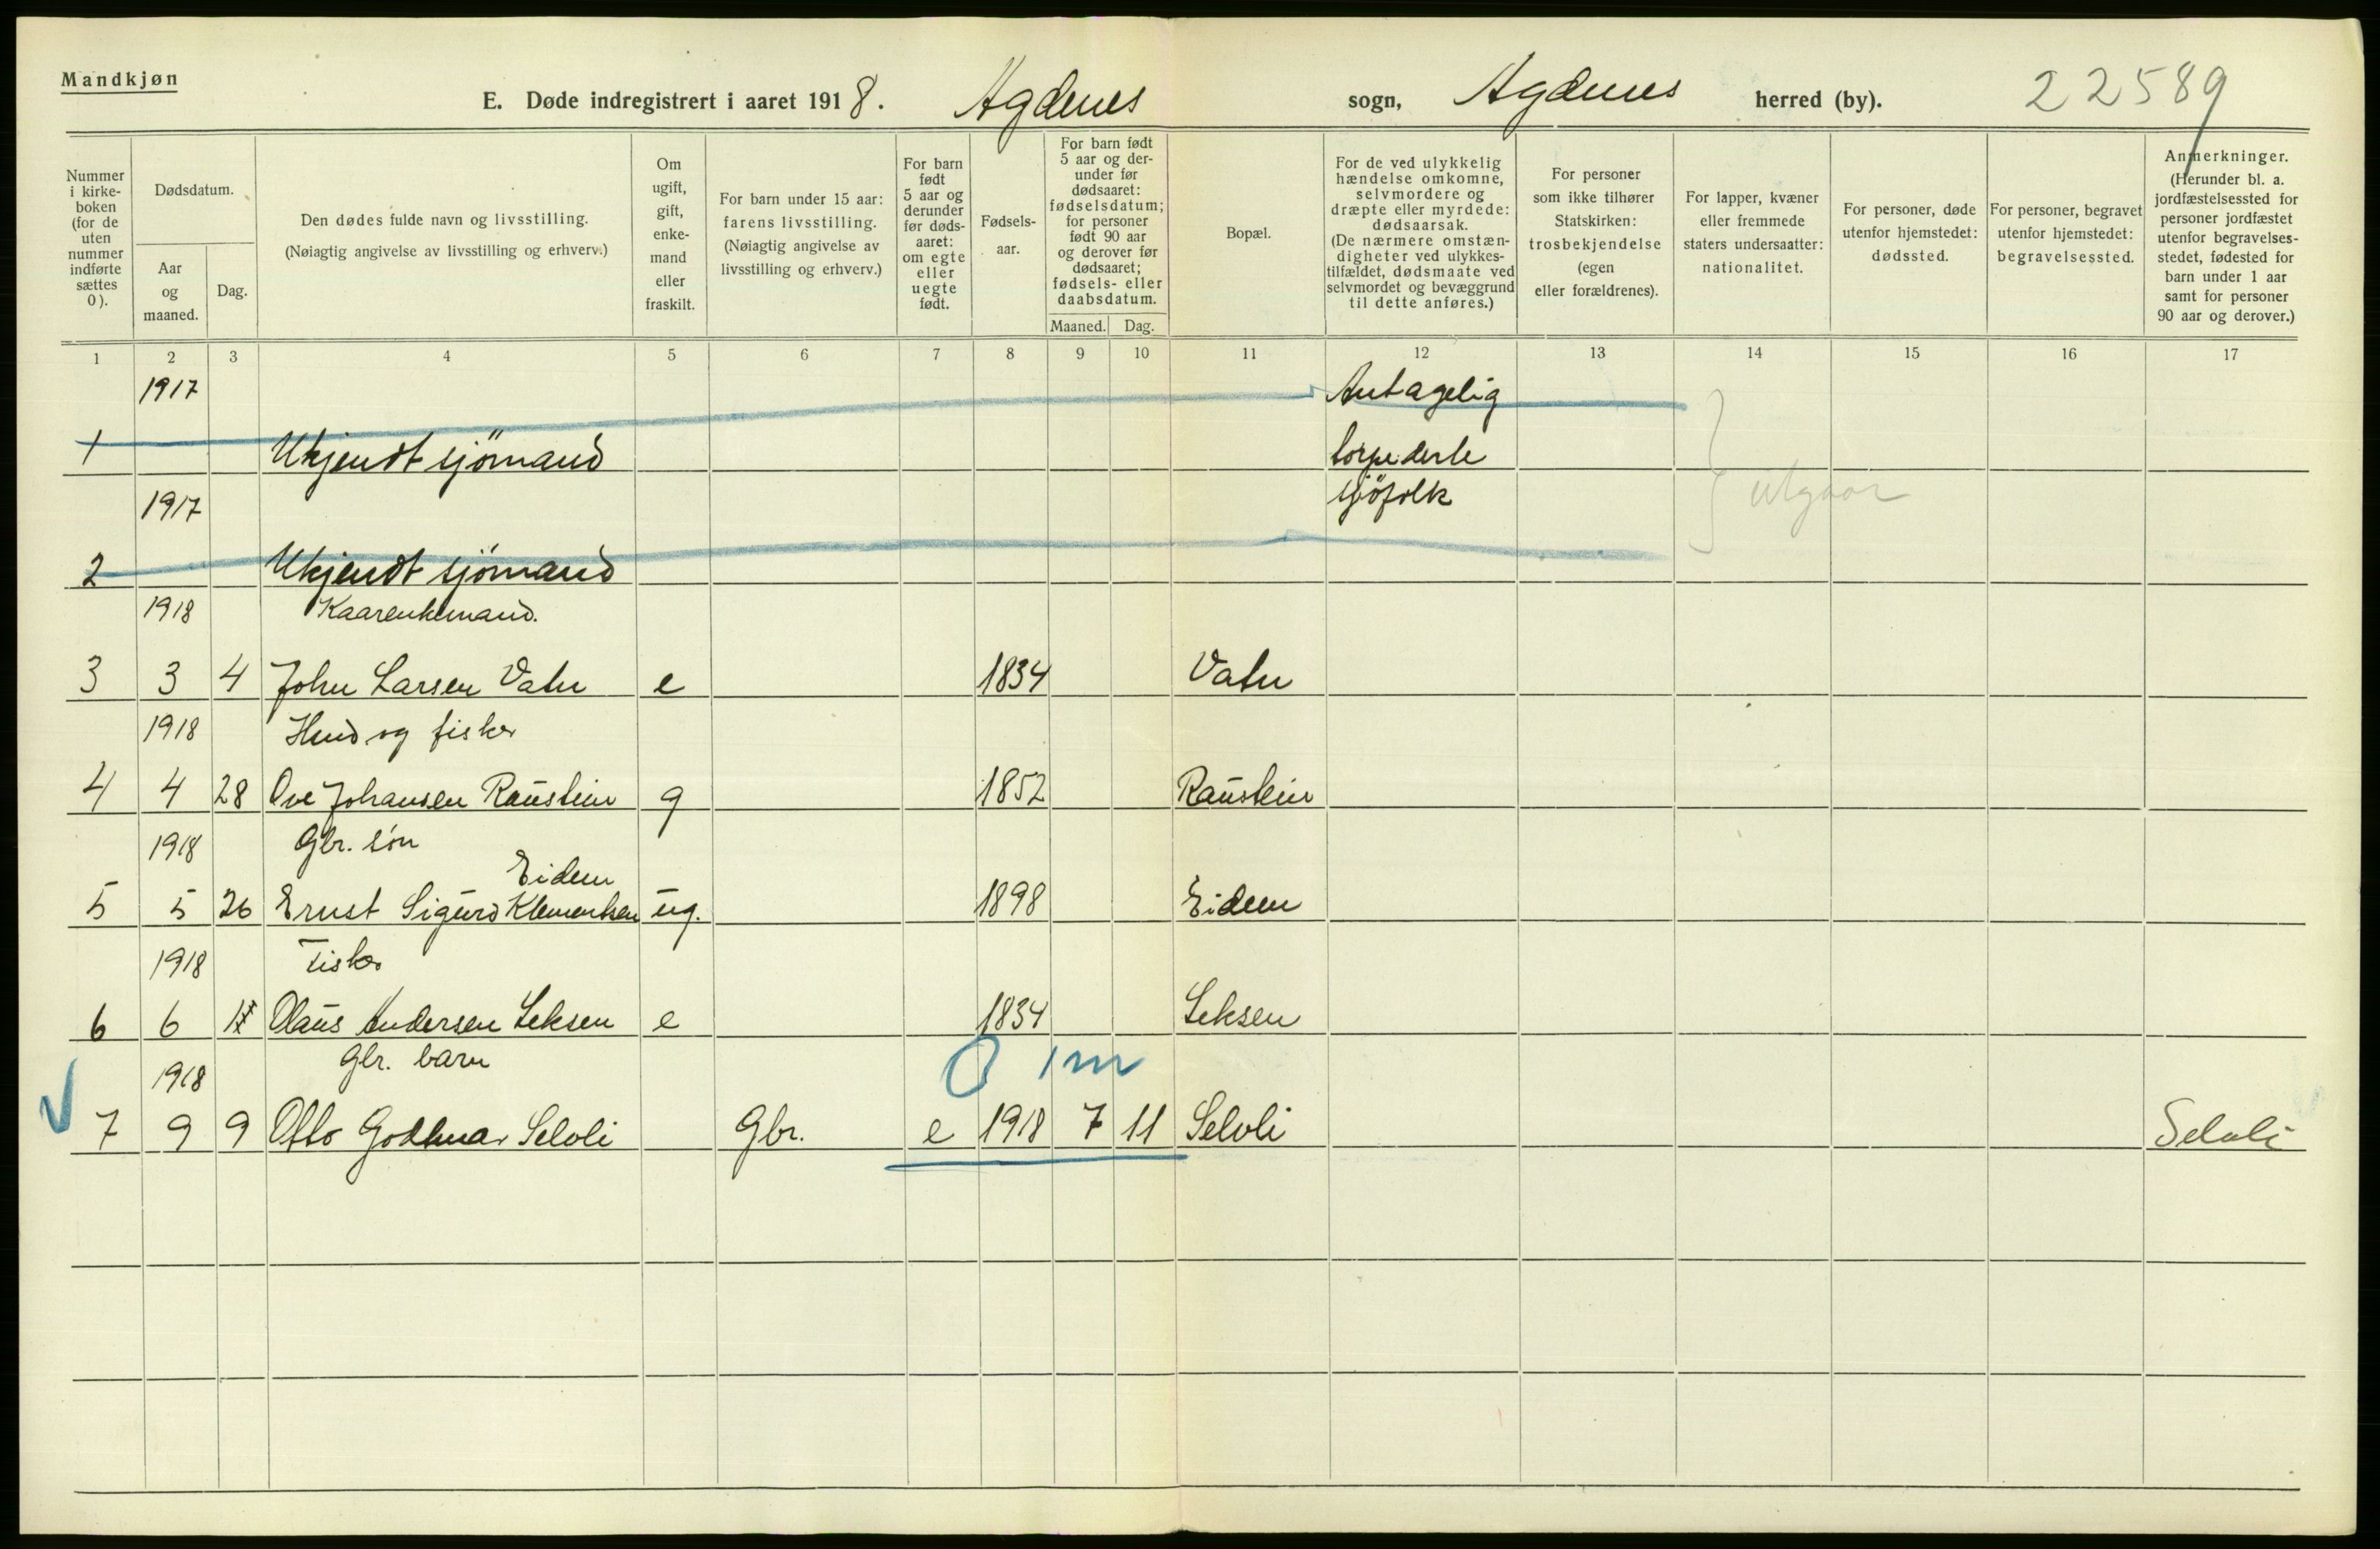 Mandkjøn
E. Døde indregistrert i aaret 1918. Agdenes sogn, Agdenes herred (by). 22589
Nummer i kirke- boken (for de uten nummer indførte sættes 0).
Dødsdatum.
Aar og maaned.
Dag.
Den dødes fulde navn og livsstilling.
(Nøiagtig angivelse av livsstilling og erhverv.)
Om ugift, gift, enke- mand eller fraskilt.
For barn under 15 aar: farens livsstilling. (Nøiagtig angivelse av livsstilling og erhverv.)
For barn født 5 aar og derunder før døds- aaret: om egte eller uegte født.
Fødsels- aar.
For barn født 5 aar og der- under før dødsaaret: fødselsdatum; for personer født 90 aar og derover før dødsaaret; fødsels- eller daabsdatum.
Maaned. Dag.
Bopæl.
For de ved ulykkelig hændelse omkomne, selvmordere og dræpte eller myrdede: dødsaarsak. (De nærmere omstæn- digheter ved ulykkes- tilfældet, dødsmaate ved selvmordet og bevæggrund til dette anføres.)
For personer som ikke tilhører Statskirken: trosbekjendelse (egen eller forældrenes).
For lapper, kvæner eller fremmede staters undersaatter: nationalitet.
For personer, døde utenfor hjemstedet: dødssted.
For personer, begravet utenfor hjemstedet: begravelsessted.
Anmerkninger. (Herunder bl. a. jordfæstelsessted for personer jordfæstet utenfor begravelses- stedet, fødested for barn under 1 aar samt for personer 90 aar og derover.)
1 2 3 4 5 6 7 8 9 10 11 12 13 14 15 16 17
1917 Antagelig
1 Ukjendt sjömand torpederte
1917 sjöfolk utgaar
2 Ukjendt sjömand
1918
3 3 4 John Larsen Vatn e 1834 Vatn
1918 Husd og fisker
4 4 28 Ove Johansen Raustein g 1852 Raustein
1918 Gbr. sön
Eidem
5 5 26 Ernst Sigurd Klementsen ug. 1898 Eidem
1918 Fisker
6 6 Olaus Andersen Leksen e 1834 Leksen
1918 Gbr. barn 0 1 m
7 9 9 Otto Godtmar Selvli Gbr. e 1918 7 11 Selvli Selvli